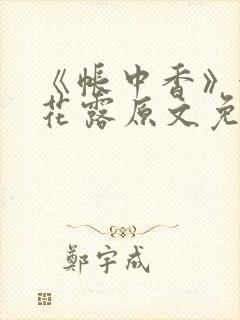 《帐中香》
花露原文免
鄭宇成